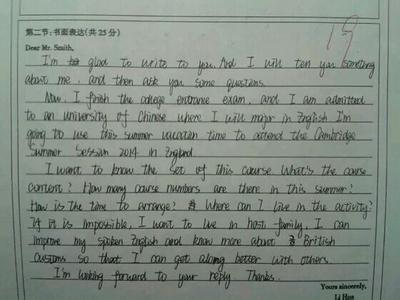 第二节：书面表达（共25分）
19
Dear Mr. Smith,
I'm glad to write to you. And I will tell you something
about me, and then ask you some questions.
Now, I finish the college entrance exam, and I am admitted
to an university of Chinese where I will major in English I'm
going to use this summer vacation time to attend the Cambridge
Summer Session 2014 in England
I want to know the set of this course What's the course
content? How many course numbers are there in this summer?
How is the time to arrange? Where can I live in the activity?
If it is impossible, I want to live in host family, I can
improve my spoken English and know more about British
customs so that I can get along better with others.
I'm looking forward to your reply Thanks.
Yours sincerely,
Li Hua